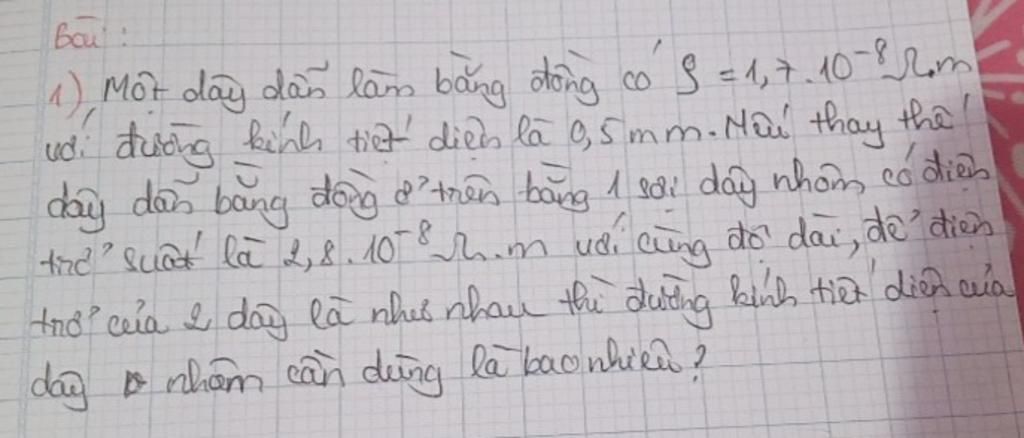 Bài:
1) Một dây dẫn làm bằng đồng có ρ = 1,7.10⁻⁸ Ω.m
với đường kính tiết diện là 0,5mm. Nếu thay thế
dây dẫn bằng đồng ở trên bằng 1 sợi dây nhôm có điện
trở suất là 2,8.10⁻⁸ Ω.m với cùng độ dài, để điện
trở của 2 dây là như nhau thì đường kính tiết diện của
dây nhôm cần dùng là bao nhiêu?